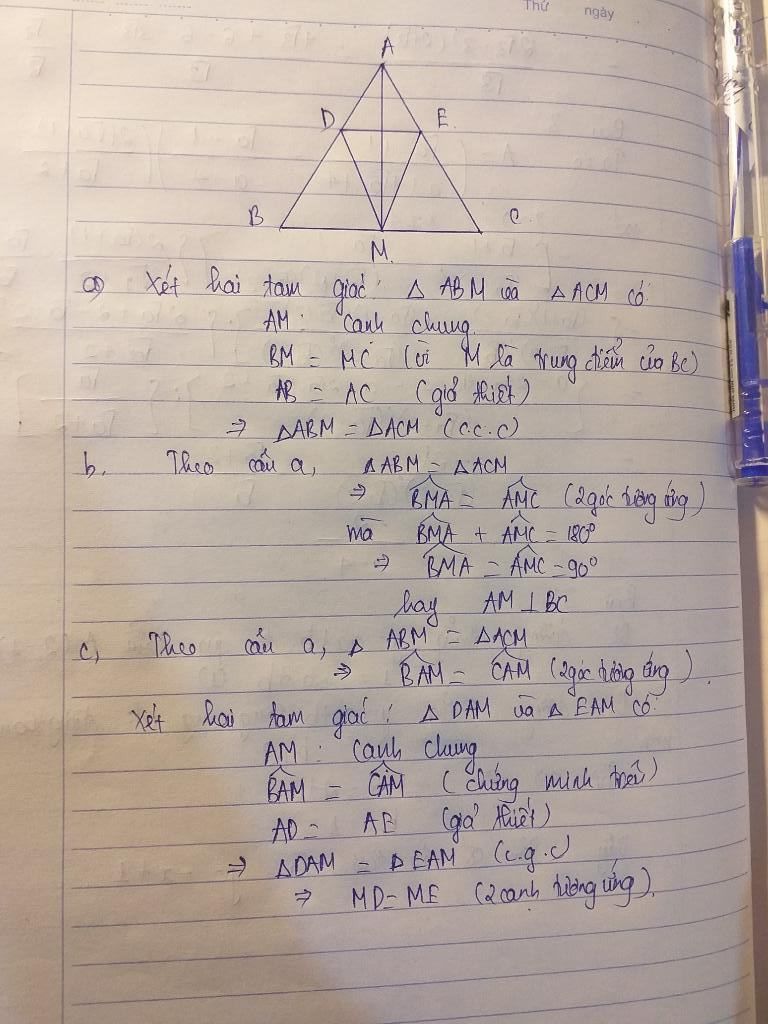 Thứ ngày
A
D E
B C
M
a) Xét hai tam giác: Δ ABM và Δ ACM có:
AM: cạnh chung
BM = MC (vì M là trung điểm của BC)
AB = AC (giả thiết)
⇒ ΔABM = ΔACM (c.c.c)
b, Theo câu a, ΔABM = ΔACM
⇒ \widehat{BMA} = \widehat{AMC} (2 góc tương ứng)
mà \widehat{BMA} + \widehat{AMC} = 180°
⇒ \widehat{BMA} = \widehat{AMC} = 90°
hay AM ⊥ BC
c, Theo câu a, Δ ABM = ΔACM
⇒ \widehat{BAM} = \widehat{CAM} (2 góc tương ứng).
Xét hai tam giác: Δ DAM và Δ EAM có:
AM: cạnh chung
\widehat{BAM} = \widehat{CAM} (chứng minh trên)
AD = AE (giả thiết)
⇒ ΔDAM = ΔEAM (c.g.c)
⇒ MD = ME (2 cạnh tương ứng).